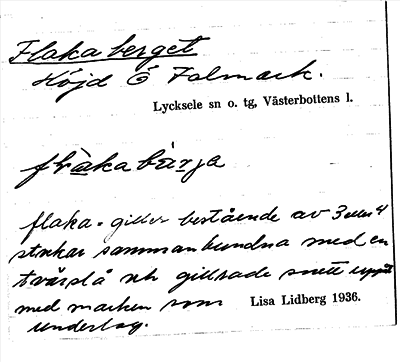 Flakaberget
Höjd Ö Falmark.
Lycksele sn o. tg, Västerbottens l.
flaka bärja
flaka = giller bestående av 3 eller 4
stockar sammanbundna med en
tvärslå och gillrade snett uppåt
med marken som
Lisa Lidberg 1936.
underlag.